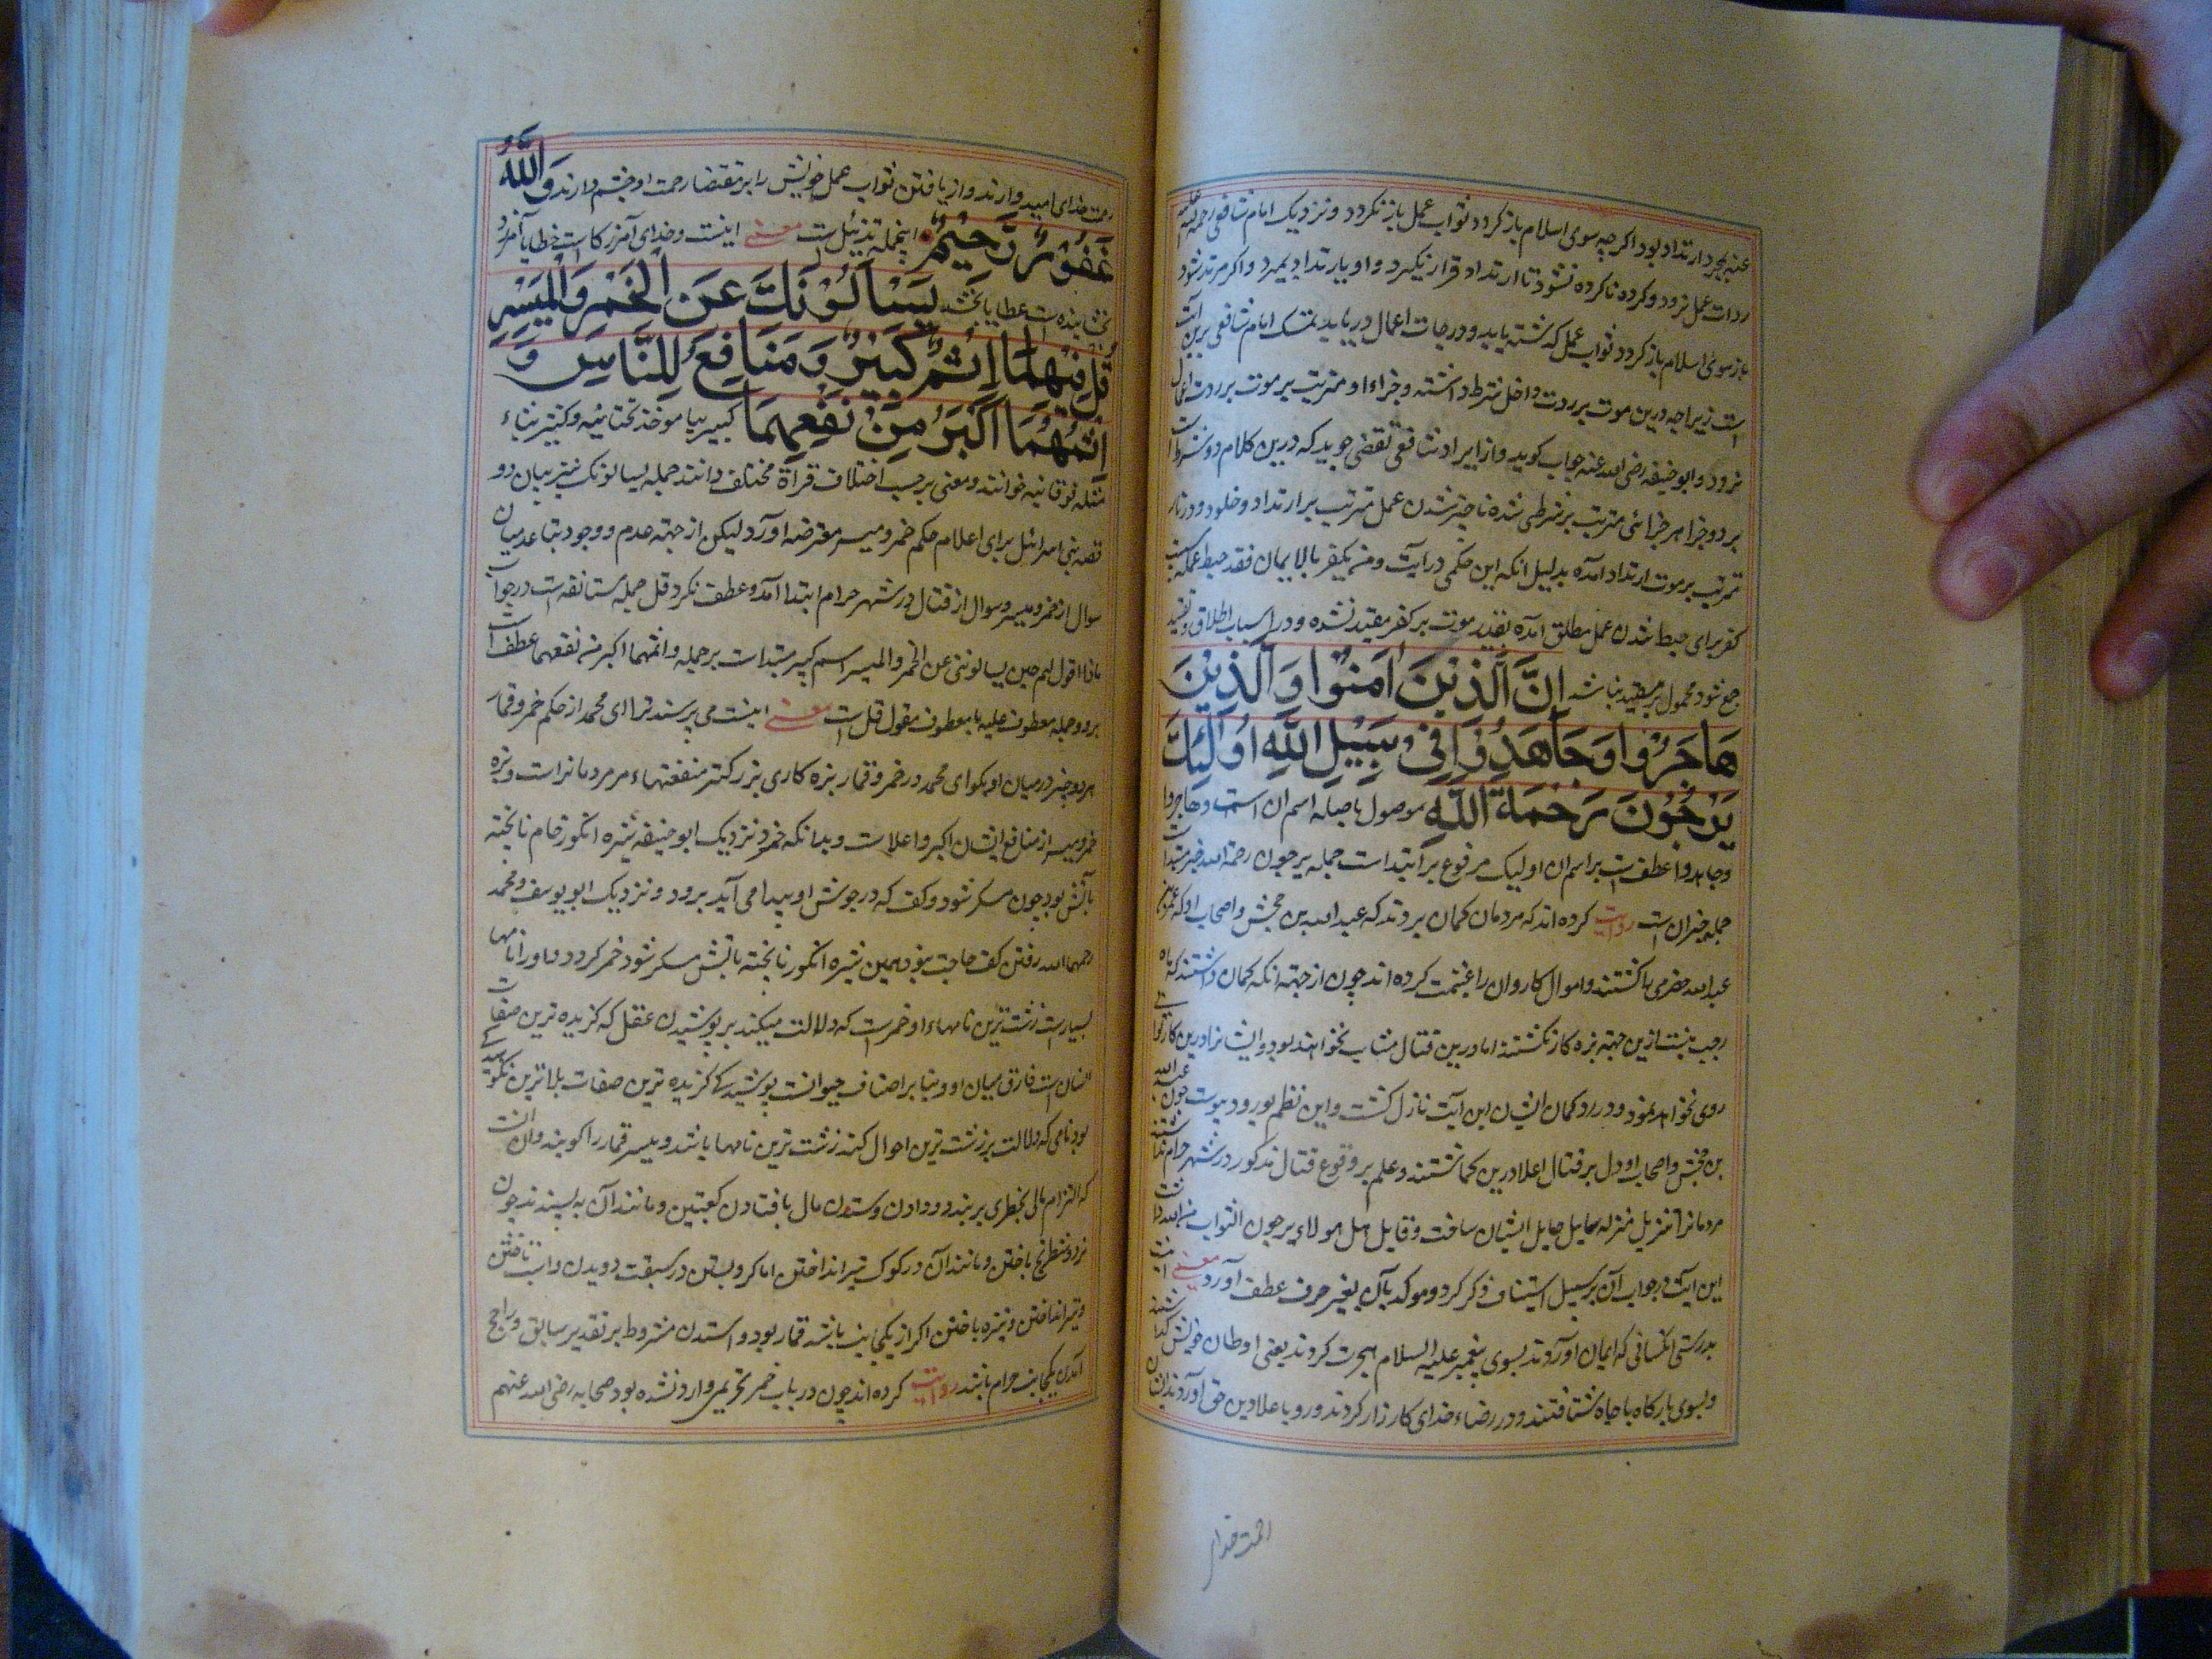 عنه بمجرد ارتداد بود اکرچه سوی اسلام باز کردد ثواب عمل باز نکردد و نزدیک امام شافعی رحمة الله علیه
ردات عمل نرود و کرده ناکرده نشود تا ارتداد قرار نکیرد و او بارتداد بمیرد و اکر مرتد شود
باز سوی اسلام باز کردد ثواب عمل کذشته یابد و درجات اعمال دریابد تمسک امام شافعی برین آیت
است زیراچه درین موت بر ردت داخل شرط داشته و جزاء او مترتب بر موت بر ردت اعمال
نرود و ابو حنیفه رضی الله عنه جواب کوید و از ایراد شافعی تفصی جوید که درین کلام دو شرط است
بر دو جزا هر جزائی مترتب بر شرطی شده ناچیز شدن عمل مترتب بر ارتداد و خلود در نار
مترتب بر موت ارتداد آمده بدلیل انکه این حکمی در آیت ومن یکفر بالایمان فقد حبط عمله بسبب
کفر برای حبط شدن عمل مطلق آمده بقید موت بر کفر مقید نشده و در اسباب اطلاق و تقیید
جمع شود محمول بر مقید نباشد إِنَّ الَّذِيْنَ اٰمَنُوْا وَالَّذِيْنَ
هَاجَرُوْا وَجَاهَدُوْا فِيْ سَبِيْلِ اللّٰهِ اُولٰٓئِكَ
يَرْجُوْنَ رَحْمَةَ اللّٰهِ موصول با صله اسم ان است وهاجروا
وجاهدوا عطف است بر اسم ان اولیک مرفوع بر ابتداست جمله یرجون رحمة الله خبر مبتدا است
جمله خبر ان است روایت کرده اند که مردمان کمان بردند که عبدالله بن جحش و اصحاب او که عمرو بن
عبدالله حضرمی را کشتند و اموال کاروان را غنیمت کرده اند چون از جهة انکه کمان داشتند که ماه
رجب نیست ازین جهة بزه کار نکشتند اما درین قتال مثاب نخواهند بود و ایشانرا درین کار ثوابی
روی نخواهد نمود و در رد کمان ایشان این آیت نازل کشت و این نظم بورود پیوست چون عبدالله
بن جحش و اصحاب او دل بر قتال اعلا دین کماشتند و علم بر وقوع قتال مذکور در شهر حرام نداشتند
این آیت در جواب آن بر سبیل استیناف ذکر کرد و موکد بان بغیر حرف عطف آورد معنی اینست
بدرستی انکسانی که ایمان آوردند بسوی پیغمبر علیه السلام هجرت کردند یعنی اوطان خویش کذاشتند
و بسوی بارکاه با جاه شتافتند و در رضاء خدای کارزار کردند و رو باعلا دین حق آوردند ایشان
رحمت خدای
رحمت خدای امید دارند و از یافتن ثواب عمل خویش را بر مقتضا رحمت او چشم دارند وَاللّٰهُ
غَفُوْرٌ رَّحِيْمٌ اینجمله تذئیل است معنی اینست و خدای آمرزکار است خطایا آمرزد
بخشاینده است عطایا بخشد يَسْاَلُوْنَكَ عَنِ الْخَمْرِ وَالْمَيْسِرِ
قُلْ فِيْهِمَا اِثْمٌ كَبِيْرٌ وَمَنَافِعُ لِلنَّاسِ وَ
اِثْمُهُمَا اَكْبَرُ مِنْ نَفْعِهِمَا کبیر بیا موحده تحتانیه و کثیر بثاء
مثلثه فوقانیه خوانند و معنی بر حسب اختلاف قرأة مختلف دانند جمله یسالونک نیز بیان دو
قصه بنی اسرائیل برای اعلام حکم خمر و میسر معترضه آورد لیکن از جهة عدم وجود بتاعد میان
سوال از خمر و میسر و سوال از قتال در شهر حرام ابتدا آمد و عطف نکرد قل جمله مستانفه است در جواب
ماذا اقول لهم حین یسالوننی عن الخمر والمیسر اسم کبیر مبتداست بر جمله واثمهما اکبر من نفعهما عطف است
هر دو جمله معطوف علیه با معطوف مقول قل است معنی اینست می پرسند ترا ای محمد از حکم خمر و قمار
هر دو چیز درمیان او بکو ای محمد در خمر و قمار بزه کاری بزرکتر منفعتهاء مر مردمانراست و بزه
خمر و میسر از منافع ایشان اکبر و اعلاست و بدانکه خمر نزدیک ابو حنیفه شیره انکور خام ناپخته
بآتش بود چون مسکر شود و کف که در جوش او پیدا می آید برود و نزدیک ابو یوسف و محمد
رحمهما الله رفتن کف حاجت نبود همین شیره انکور ناپخته باتش مسکر شود خمر کردد و او را نامها
بسیارست زشت ترین نامهاء او خمرست که دلالت میکند بر پوشیدن عقل که کزیده ترین صفات
انسان است فارق میان او و بنا بر اصناف حیوانست پوشیدکی کزیده ترین صفات بلا ترین نکوهیدکی
بود نامی که دلالت بر زشت ترین احوال کند زشت ترین نامها باشد و میسر قمار را کویند و آن آنست
که التزام مالی بخطری بر بندد و دادن و ستدن مال بافتادن کعبتین و مانند آن پسندند چون
نرد و شطرنج باختن و مانند آن در کوک تیر انداختن اما کرو بستن در سبقت دویدن و اسب تاختن
و تیر انداختن و نیزه باختن اکر از یکجانب باشد قمار نبود و استدن مشروط بر تقدیر سابق و راجح
آمدن یکجانب حرام نباشد روایت کرده اند چون در باب خمر تحریمی وارد نشده بود صحابه رضی الله عنهم